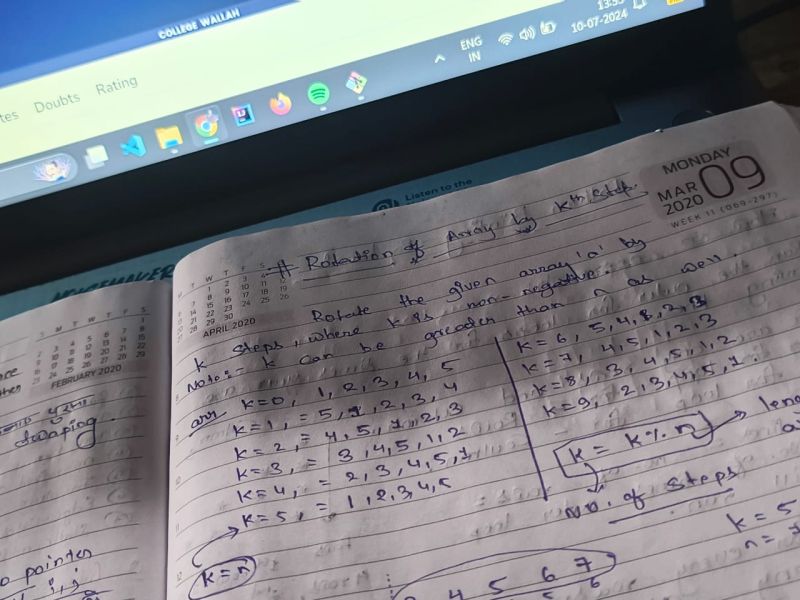 COLLEGE WALLAH
Doubts Rating
ENG
IN
13:55
10-07-2024
Listen to the
MONDAY
MAR 09
2020
WEEK 11 (069-297)
APRIL 2020
FEBRUARY 2020
# Rotation of Array by Kth Step.
Rotate the given array 'a' by
K steps, where K is non-negative.
Note:- K can be greater than n as well.
arr K=0, 1, 2, 3, 4, 5
K=1, = 5, 1, 2, 3, 4
K=2, = 4, 5, 1, 2, 3
K=3, = 3, 4, 5, 1, 2
K=4, = 2, 3, 4, 5, 1
K=5, = 1, 2, 3, 4, 5
K=n
K=6, 5, 4, 1, 2, 3
K=7, 4, 5, 1, 2, 3
K=8, 3, 4, 5, 1, 2
K=9, 2, 3, 4, 5, 1.
K = K % n
No. of Steps
K=5
n=7
4 5 6 7
5 6
swaping
pointer
i, j